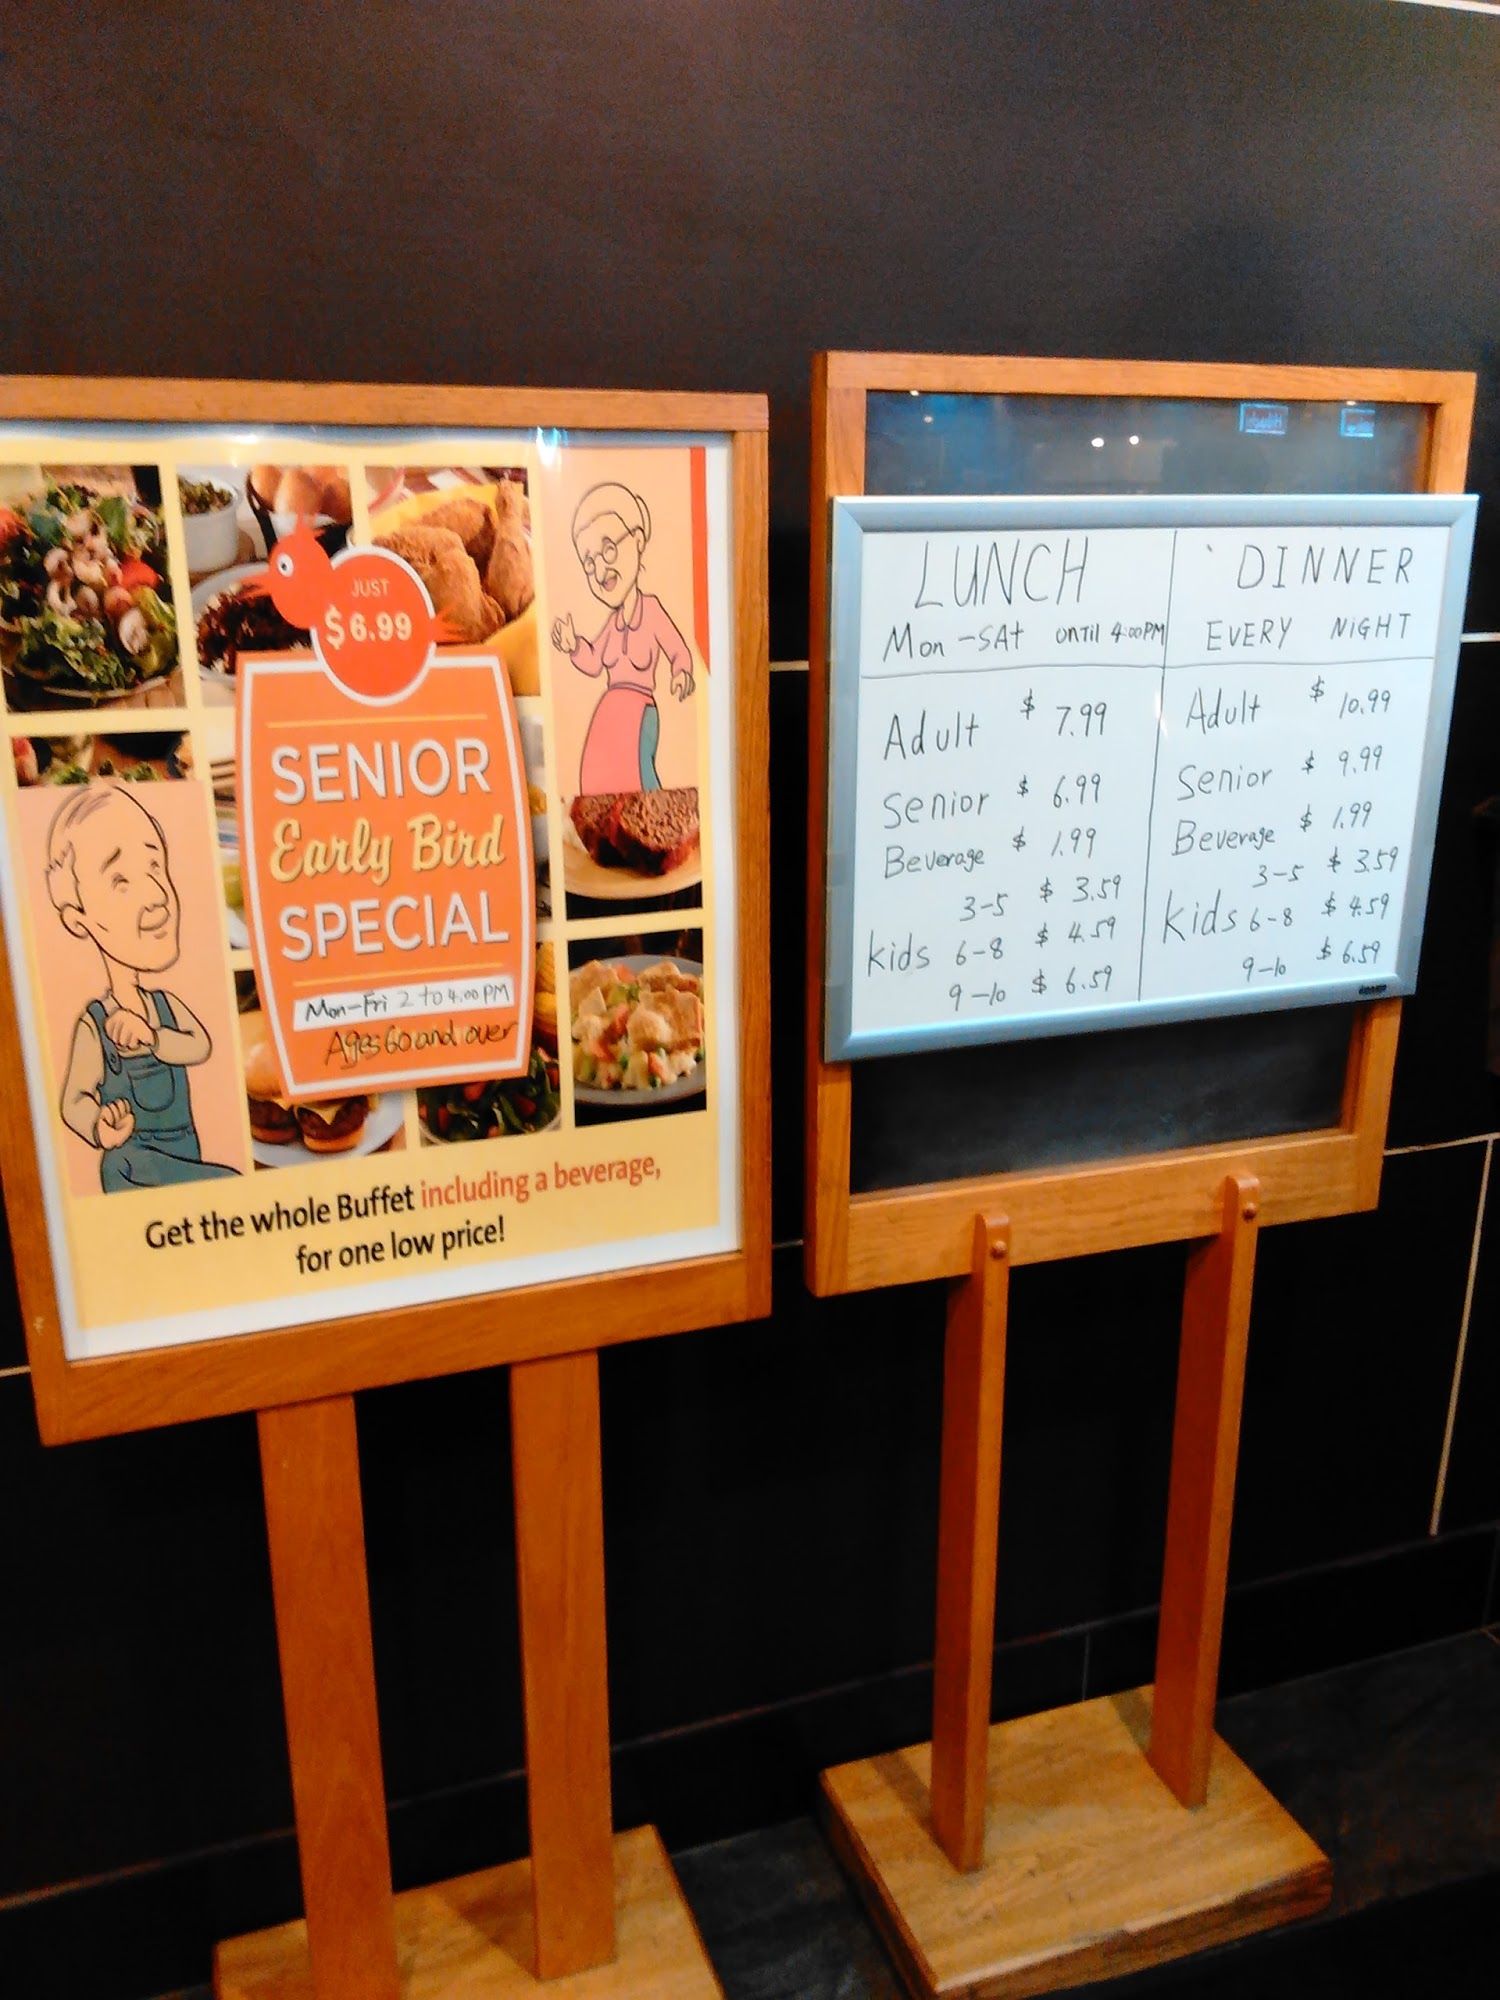 JUST
$6.99
SENIOR
Early Bird
SPECIAL
Mon-Fri 2 to 4:00 PM
Ages 60 and over
Get the whole Buffet including a beverage,
for one low price!
LUNCH
Mon -SAt UNTiL 4:00PM
Adult $ 7.99
Senior $ 6.99
Beverage $ 1.99
3-5 $ 3.59
kids 6-8 $ 4.59
9-10 $ 6.59
DINNER
EVERY NiGHT
Adult $ 10.99
Senior $ 9.99
Beverage $ 1.99
3-5 $ 3.59
kids 6-8 $ 4.59
9-10 $ 6.59